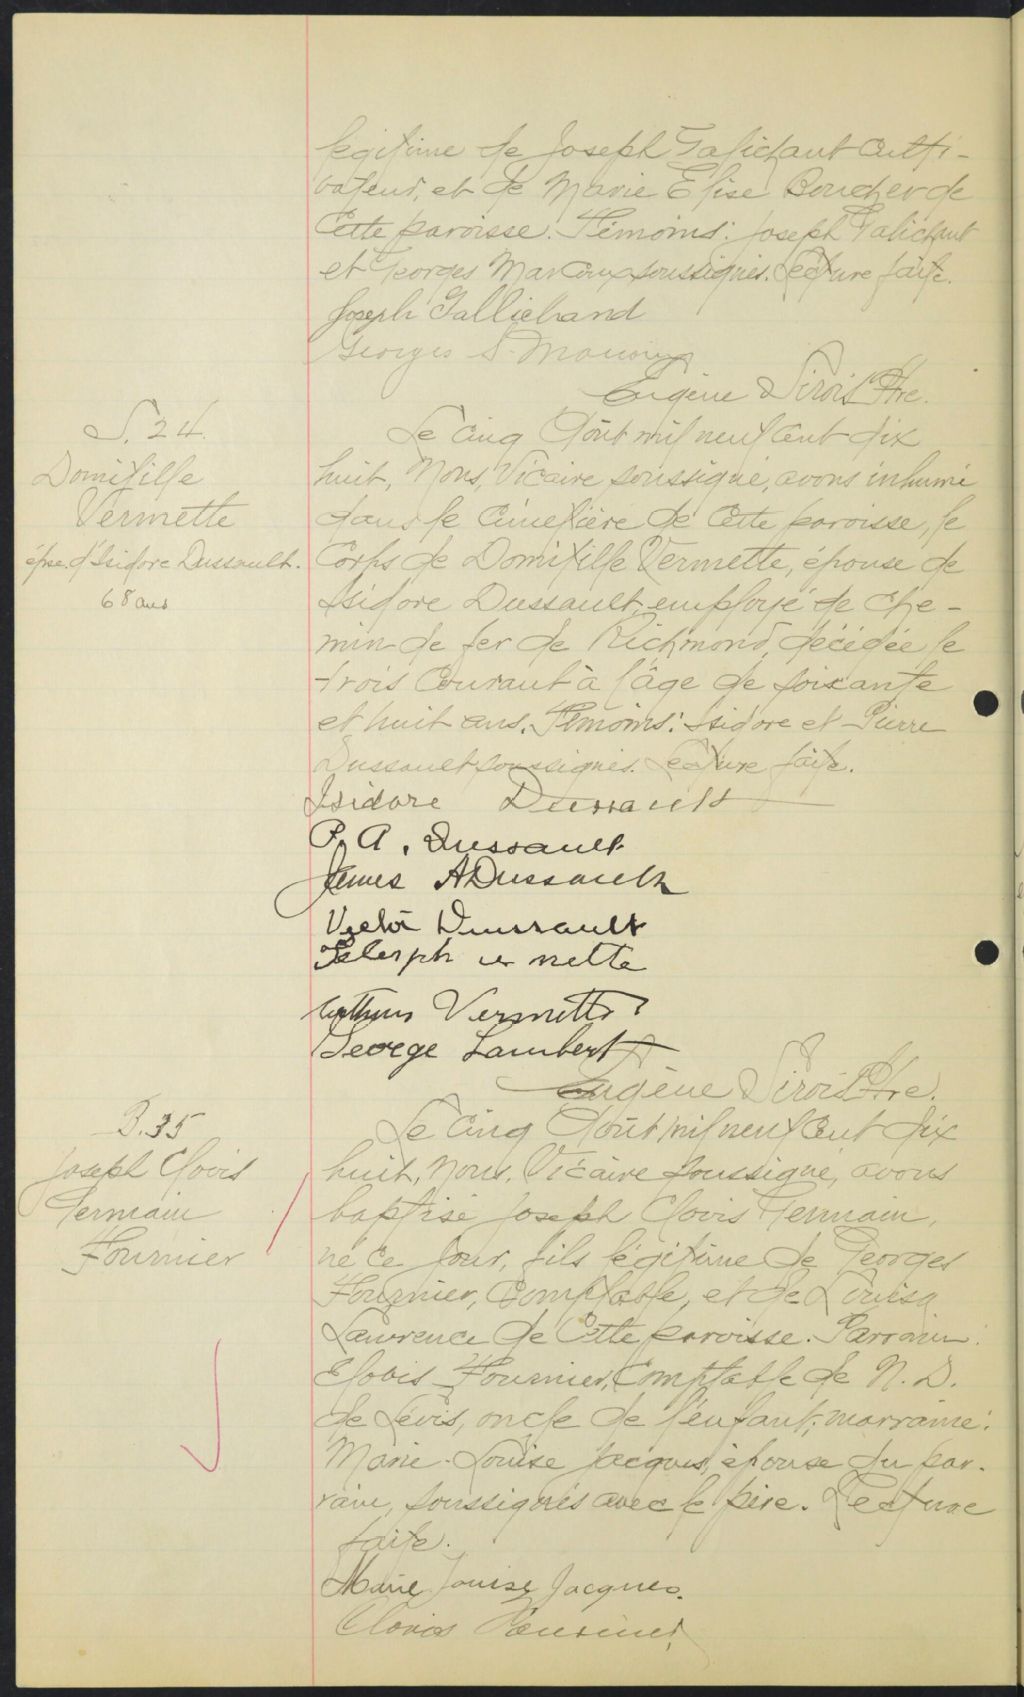 légitime de Joseph Galichant culti-
vateur, et de Marie Elise Boucher de
cette paroisse. Témoins: Joseph Galichant
et Georges Marcoux soussignés. Lecture faite.
Joseph Gallichand
Georges S.
Eugène Sirois Ptre.
S. 24
Domitille
Vermette
épse. d'Isidore Dussault.
68 ans
Le cinq Août mil neuf cent dix
huit, Nous, Vicaire soussigné, avons inhumé
dans le cimetière de cette paroisse, le
corps de Domitille Vermette, épouse de
Isidore Dussault, employé de che-
min de fer de Richmond, décédée le
trois courant à l'âge de soixante
et huit ans. Témoins: Isidore et Pierre
Dussault soussignés. Lecture faite.
Isidore Dussault
P. A. Dussault
James A Dussault
Victor Dussault
Arthur Vermette
George Lambert
Eugène Sirois Ptre.
B. 35
Joseph Clovis
Germain
Fournier
Le cinq Août mil neuf cent dix
huit, Nous, Vicaire soussigné, avons
baptisé Joseph Clovis Germain,
né ce jour, fils légitime de Georges
Fournier, comptable, et de Louisa
Lawrence de cette paroisse. Parrain:
Clovis Fournier, comptable de N. D.
de Lévis, oncle de l'enfant; marraine:
Marie-Louise Jacques, épouse du par-
rain, soussignés avec le père. Lecture
faite.
Marie Louise Jacques.
Clovis Fournier